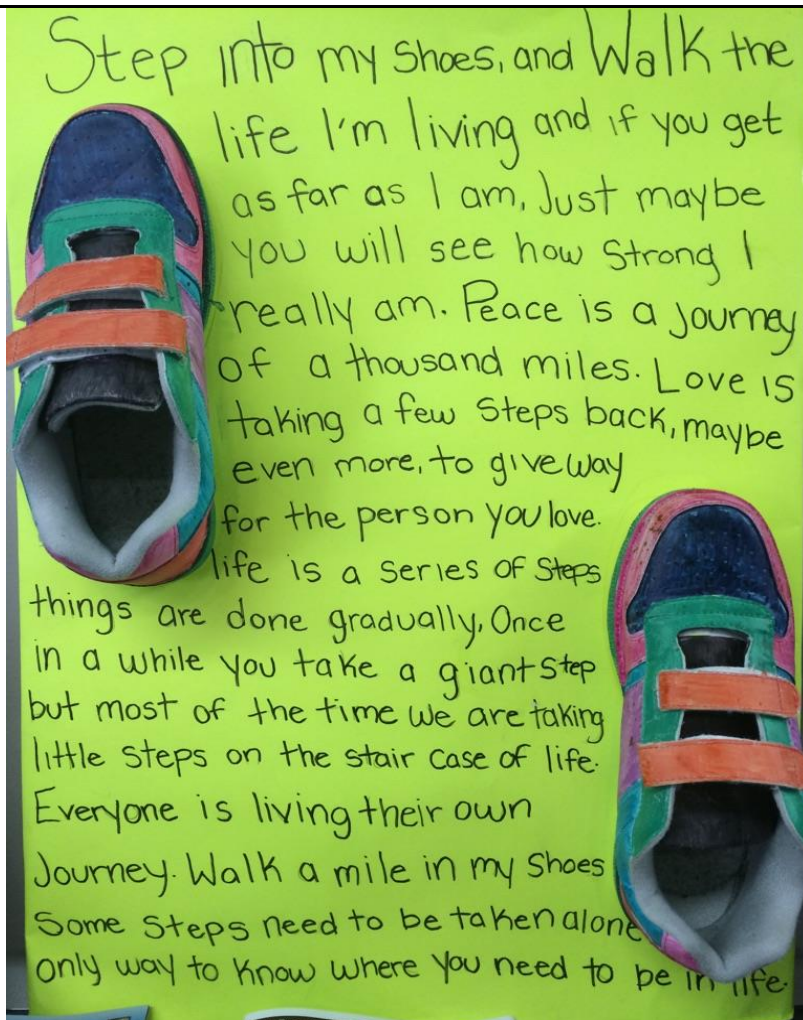 Step into my Shoes, and Walk the
life I'm living and if you get
as far as I am, Just maybe
you will see how Strong I
really am. Peace is a journey
of a thousand miles. Love is
taking a few Steps back, maybe
even more, to give way
for the person you love.
life is a series of Steps
things are done gradually, Once
in a while you take a giant Step
but most of the time we are taking
little steps on the stair case of life.
Everyone is living their own
Journey. Walk a mile in my Shoes
Some Steps need to be taken alone
only way to know where you need to be in life.